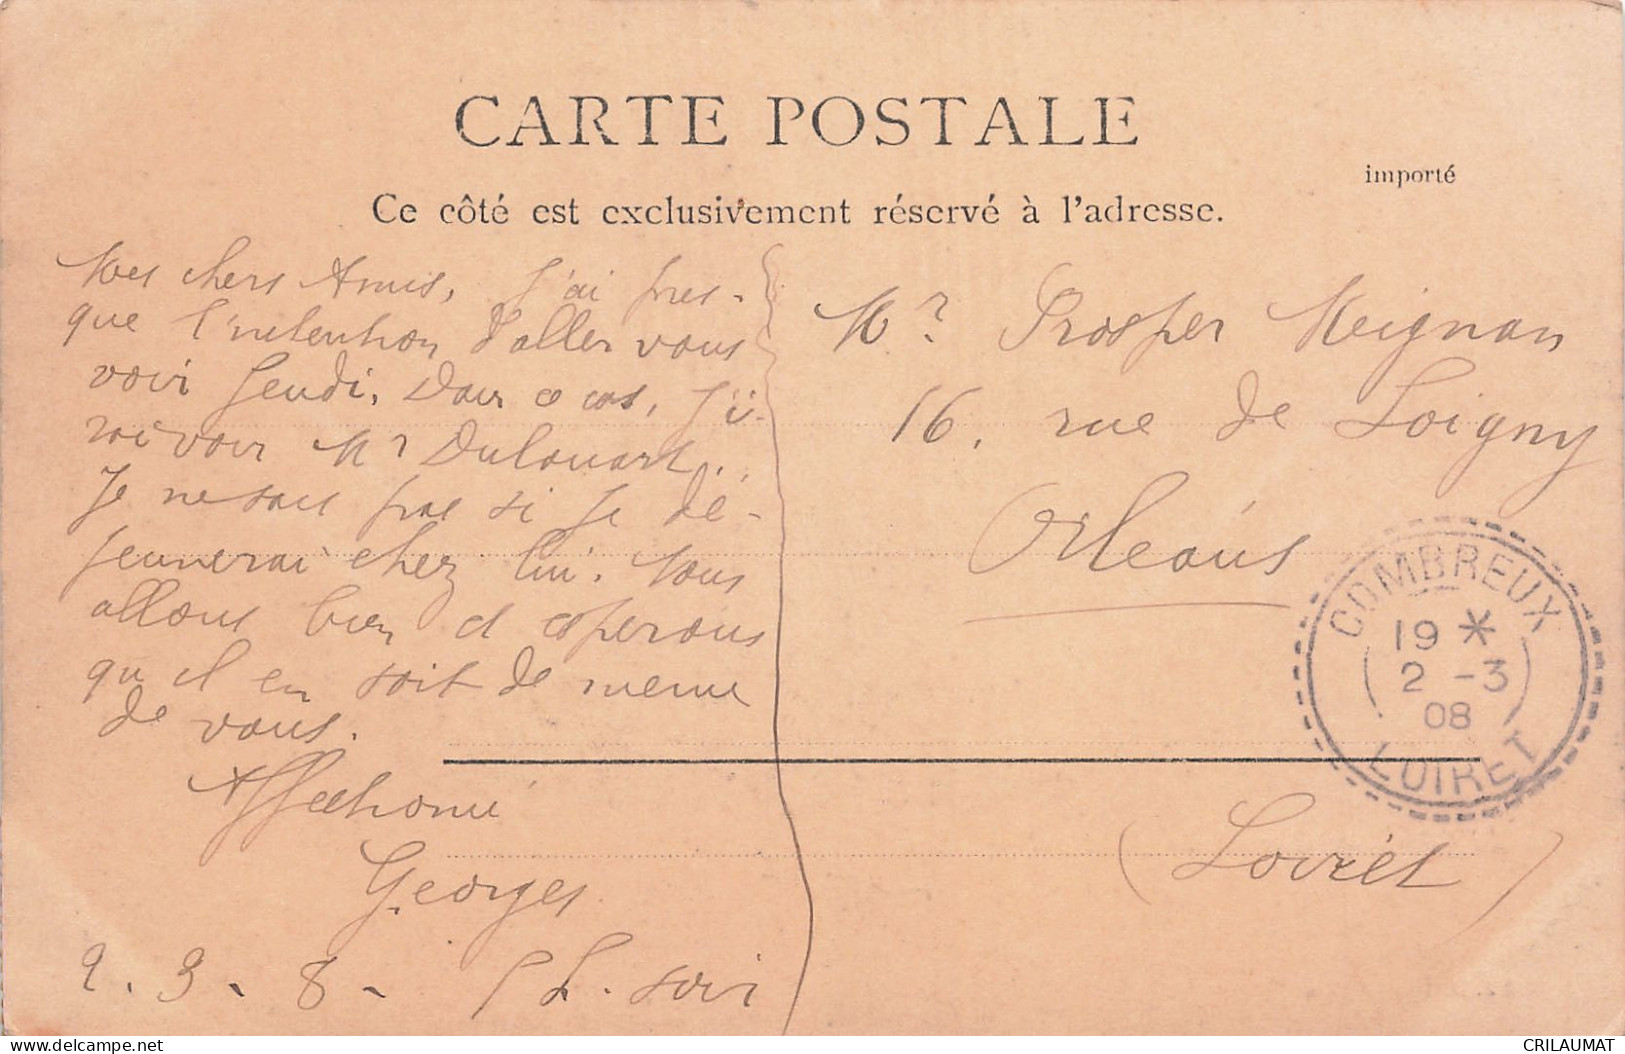 CARTE POSTALE
importé
Ce côté est exclusivement réservé à l'adresse.
Mes chers Amis, J'ai pres-
que l'intention d'aller vous
voir Jeudi. Dans ce cas, j'i-
rai voir Mr
Je ne sais pas si je dé-
jeunerai chez lui. Nous
allons bien et espérons
qu'il en soit de meme
de vous.
Affectionné
Georges
2.3.8- 5 h. soir
Mr Prosper Meignan
16, rue de Loigny
Orléans
(Loiret)
COMBREUX
19 *
2 -3
08
LOIRET
www.delcampe.net
CRILAUMAT